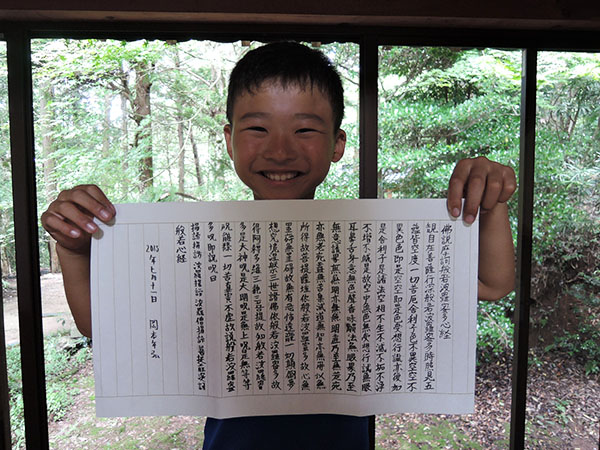 佛説摩訶般若波羅蜜多心経
観自在菩薩行深般若波羅蜜多時照見五
蘊皆空度一切苦厄舎利子色不異空空不
異色色即是空空即是色受想行識亦復如
是舎利子是諸法空相不生不滅不垢不浄
不増不減是故空中無色無受想行識無眼
耳鼻舌身意無色聲香味觸法無眼界乃至
無意識界無無明亦無無明盡乃至無老死
亦無老死盡無苦集滅道無智亦無得以無
所得故菩提薩埵依般若波羅蜜多故心無
罣礙無罣礙故無有恐怖遠離一切顛倒夢
想究竟涅槃三世諸佛依般若波羅蜜多故
得阿耨多羅三藐三菩提故知般若波羅蜜
多是大神呪是大明呪是無上呪是無等等
呪能除一切苦真實不虚故説般若波羅蜜
多呪即説呪曰
羯諦羯諦 波羅羯諦 波羅僧羯諦 菩提薩婆訶
般若心経
2015年七月十一